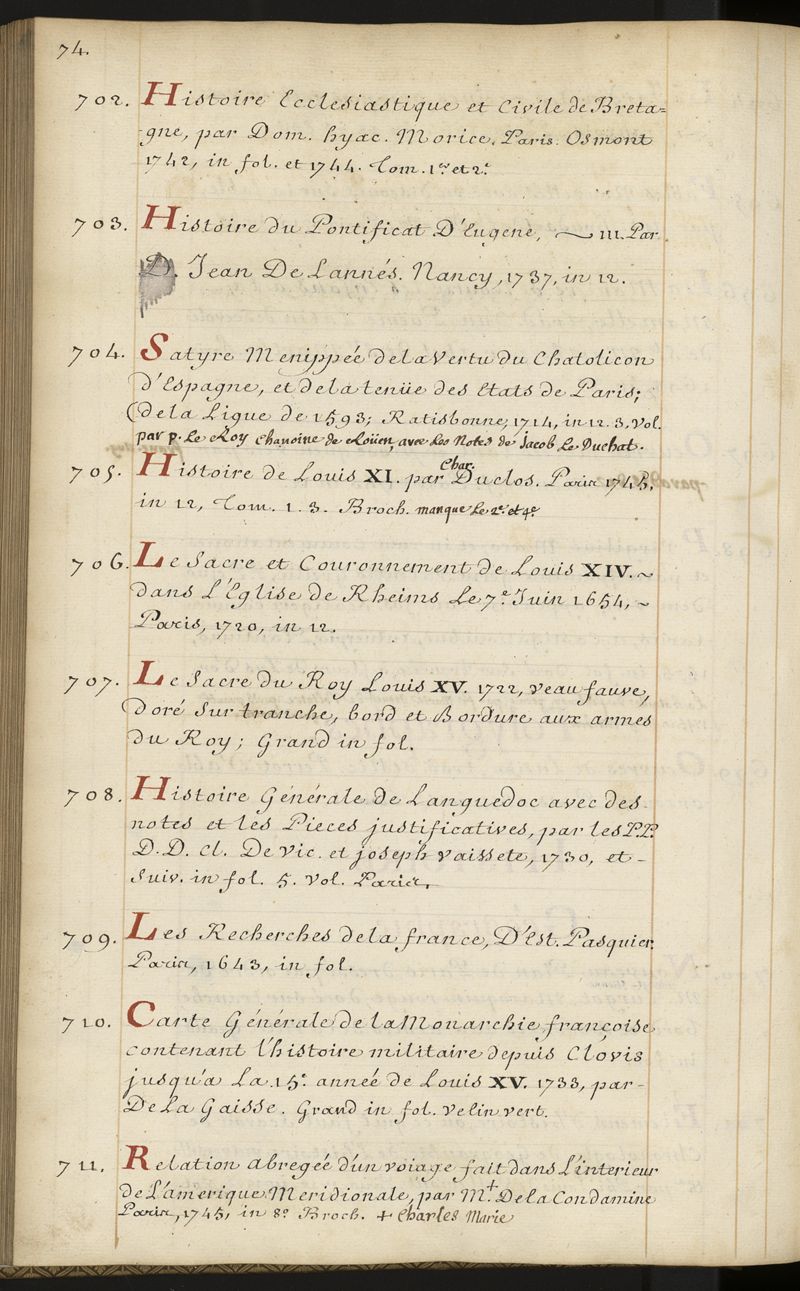 74.
702. Histoire Ecclesiastique et Civile de Breta=
gne, par Dom. hyac. Morice. Paris. Osmont
1742, in fol. et 1744. Tom. 1.er et 2.e
703. Histoire du Pontificat D'Eugene, ~ III. Par.
D. Jean De Lannés. Nancy, 1737, in 12.
704. Satyre Menippée de la Vertu du Chatolicon
d'Espagne, et de la tenüe des Etats de Paris;
(de la Ligue de 1593; Ratisbonne, 1714, in 12. 3. Vol.
par P. Le Roy Chanoine de Roüen, avec les Notes de Jacob Le Duchat.
705. Histoire de Louis XI. par Char. Duclos. Paris 1745,
in 12, Tom. 1. 3. Broch. manque le 2.e et 4.e
706. Le Sacre et Couronnement de Louis XIV. ~
dans L'Eglise de Rheims Le 7.e Juin 1654, ~
Paris, 1720, in 12.
707. Le Sacre du Roy Louis XV. 1722, veau fauve,
Doré sur tranche, bord et Bordure aux armes
du Roy; Grand in fol.
708. Histoire Générale de Languedoc avec des
notes et les Pieces justificatives, par les PP.
D. D. Cl. De Vic. et joseph Vaissete, 1730, et -
Suiv. in fol. 5. Vol. Paris,
709. Les Recherches de la france, D'Est. Pasquier.
Paris, 1643, in fol.
710. Carte Générale de la Monarchie françoise
contenant l'histoire militaire depuis Clovis
jusqu'a La 15.e année de Louis XV. 1733, par -
De La Gaisse. Grand in fol. velin vert.
711. Relation abregée d'un voiage fait dans L'interieur
de L'amerique Meridionale, par M.r + De la Condamine
Paris, 1745, in 8.o Broch. + Charles Marie